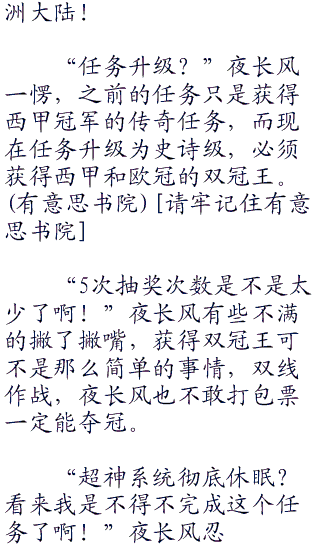 洲大陆！
“任务升级？”夜长风
一愣，之前的任务只是获得
西甲冠军的传奇任务，而现
在任务升级为史诗级，必须
获得西甲和欧冠的双冠王。
(有意思书院)[请牢记住有意
思书院]
“5次抽奖次数是不是太
少了啊！”夜长风有些不满
的撇了撇嘴，获得双冠王可
不是那么简单的事情，双线
作战，夜长风也不敢打包票
一定能夺冠。
“超神系统彻底休眠？
看来我是不得不完成这个任
务了啊！”夜长风忍